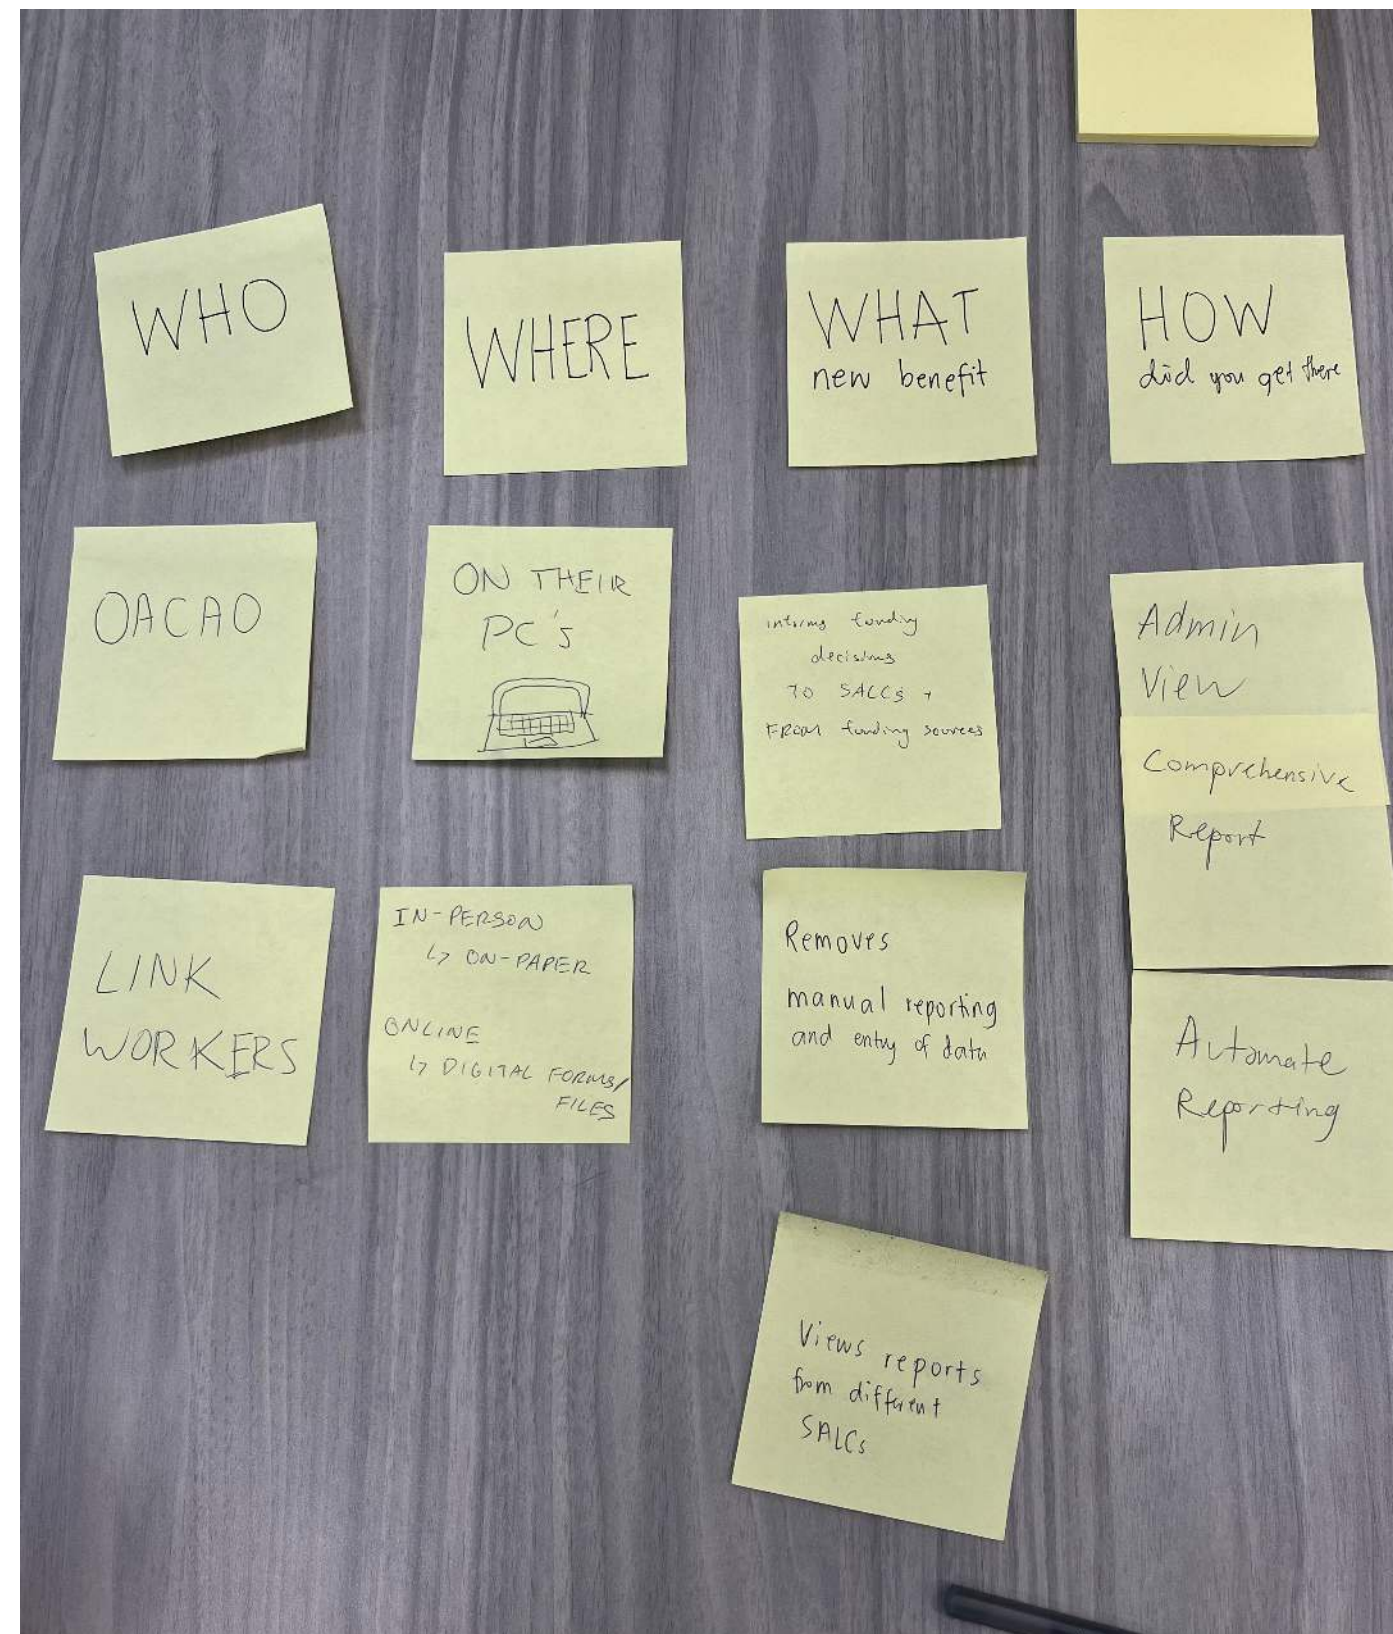 WHO
WHERE
WHAT
new benefit
HOW
did you get there
OACAO
ON THEIR
PC's
informs funding
decisions
TO SALCs +
FROM funding sources
Admin
View
Comprehensive
Report
LINK
WORKERS
IN-PERSON
↳ ON-PAPER
ONLINE
↳ DIGITAL FORMS/
FILES
Removes
manual reporting
and entry of data
Automate
Reporting
Views reports
from different
SALCs